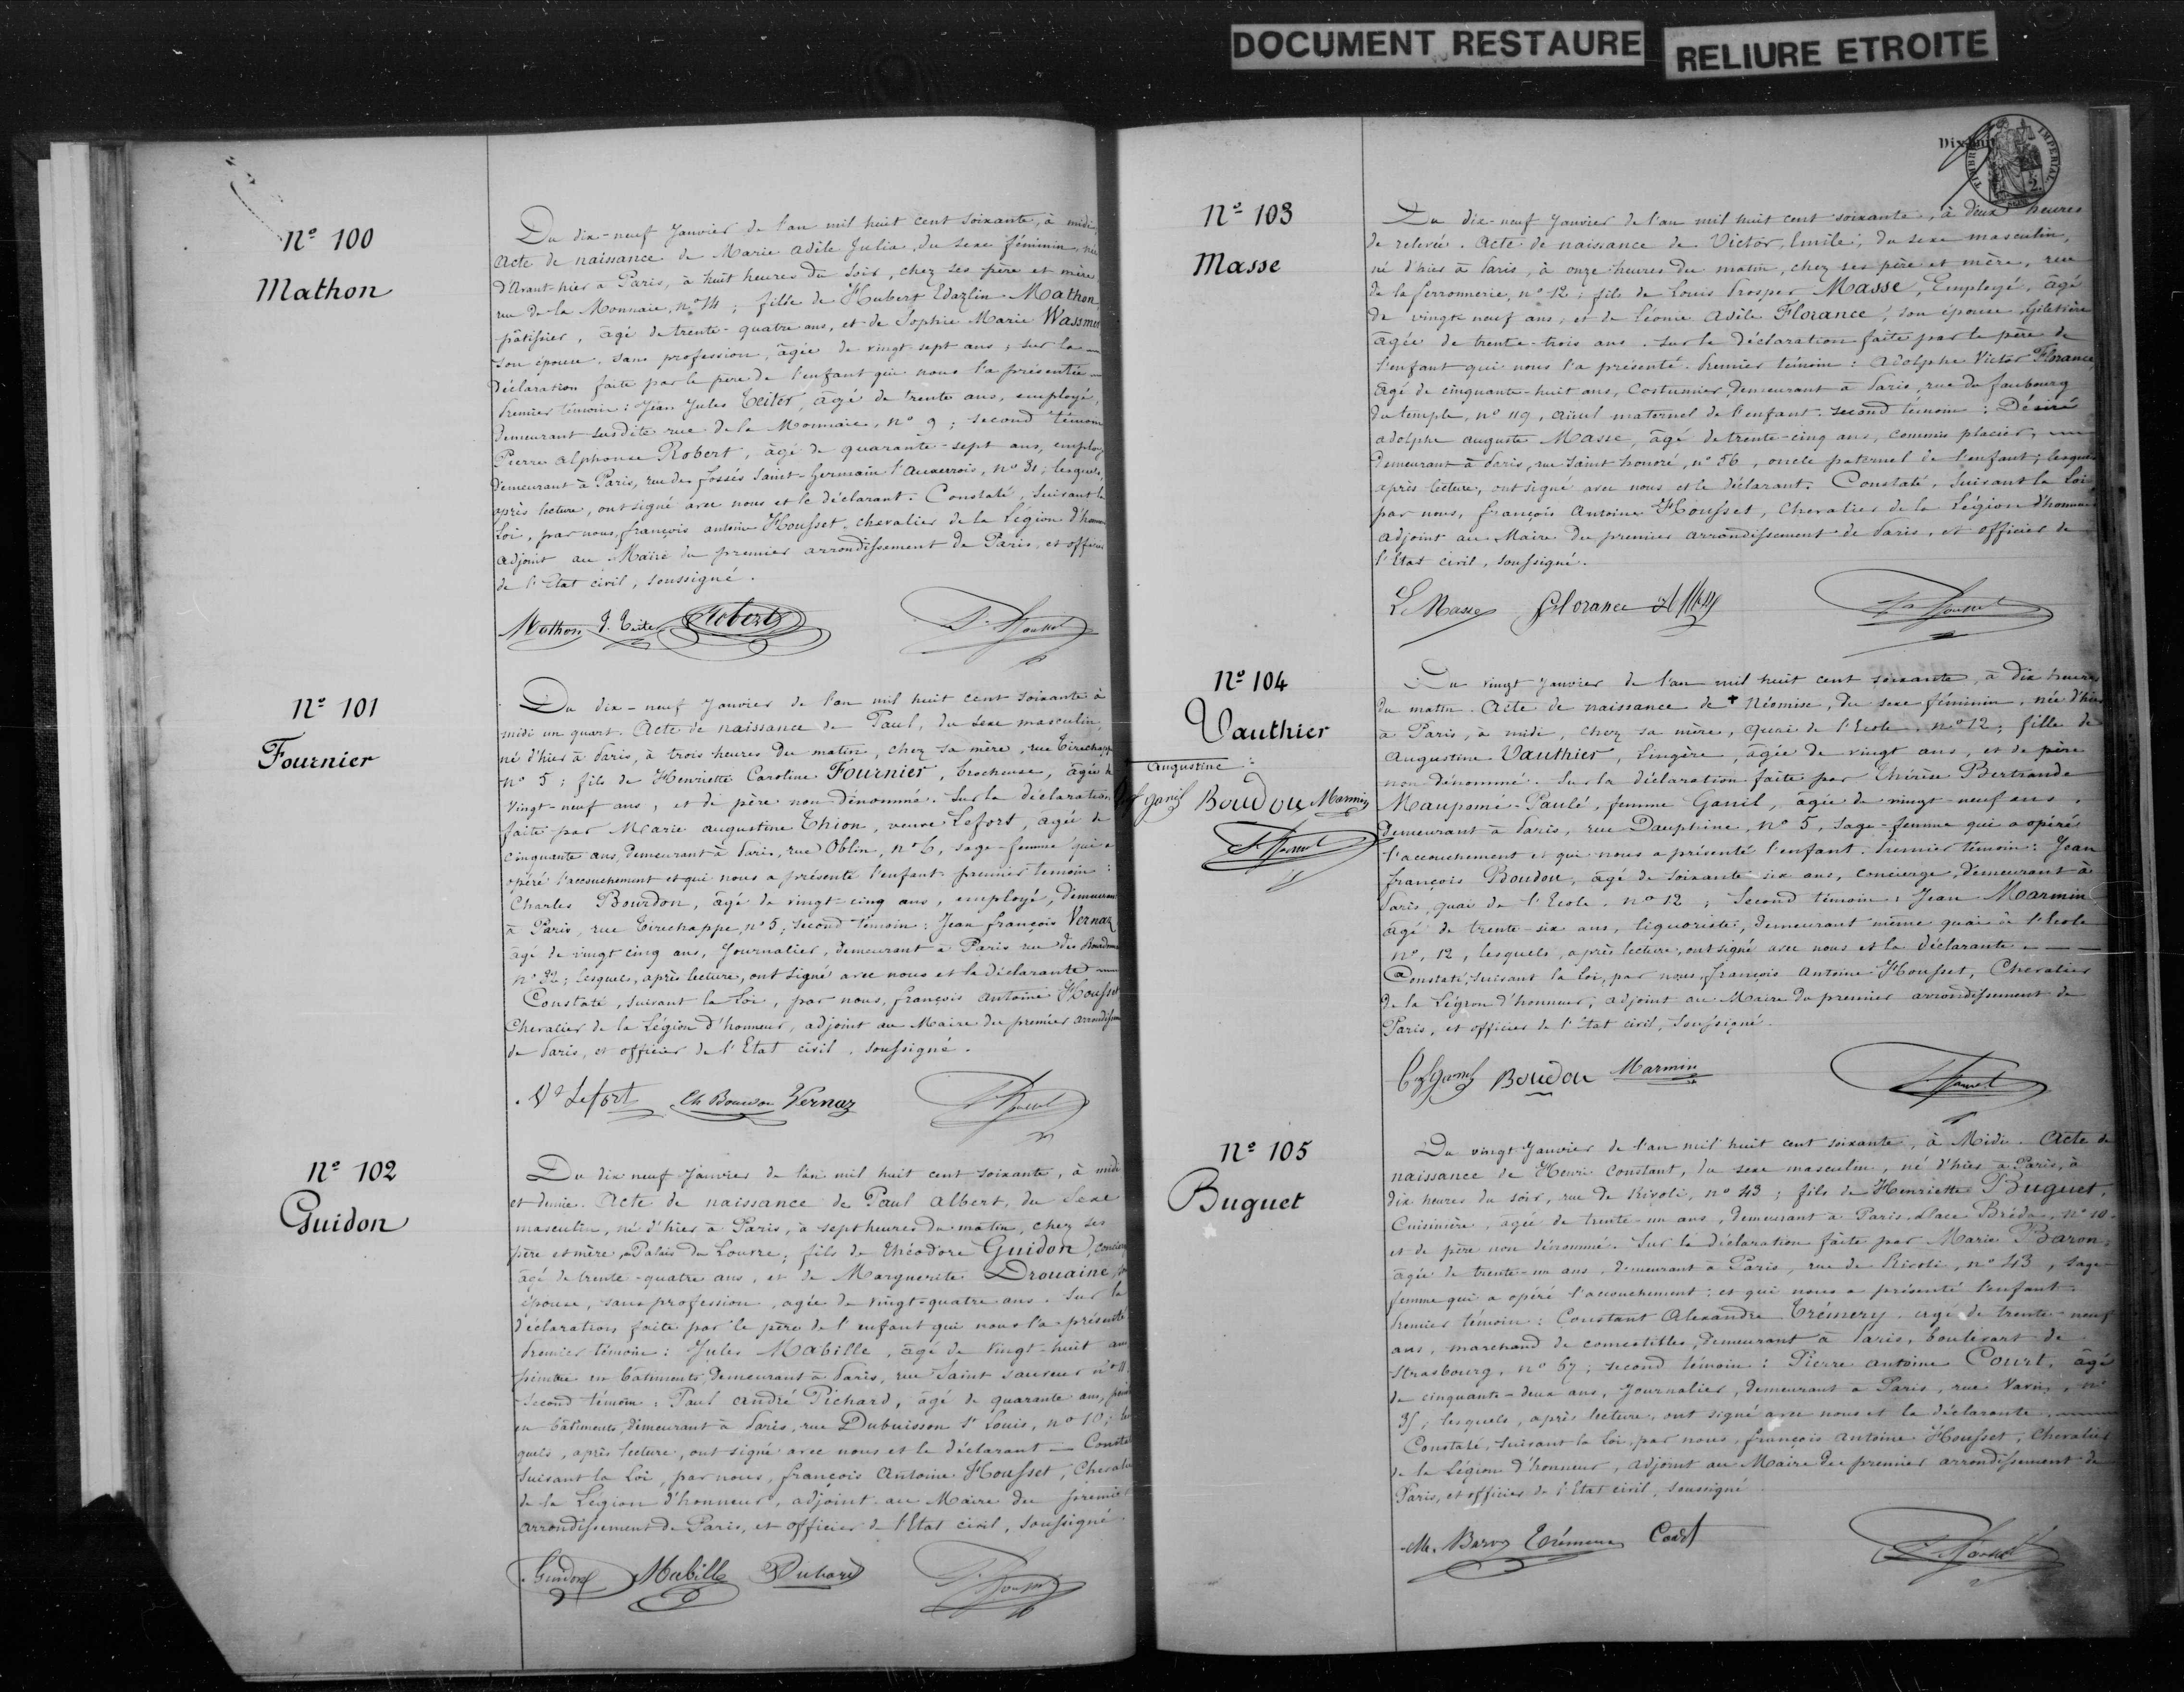 DOCUMENT RESTAURE
RELIURE ETROITE
Nº 100
Mathon
Du dix-neuf Janvier de l'an mil huit cent soixante, à midi,
Acte de naissance de Marie Adèle Julia, du sexe féminin, née
d'Avant-hier à Paris, à huit heures du soir, chez ses père et mère
rue de la Monnaie, nº 14 ; fille de Hubert Edazlin Mathon,
pâtissier, âgé de trente-quatre ans, et de Sophie Marie Wassmer
son épouse, sans profession, âgée de vingt-sept ans ; sur la
déclaration faite par le père de l'enfant qui nous l'a présentée
Premier témoin : Jean Jules Teiter, âgé de trente ans, employé,
demeurant susdite rue de la Monnaie, nº 9 ; second témoin
Pierre Alphonse Robert, âgé de quarante-sept ans, employé
demeurant à Paris, rue des fossés Saint-Germain l'Auxerrois, nº 31 ; lesquels,
après lecture, ont signé avec nous et le déclarant. Constaté, suivant la
Loi, par nous, françois antoine Housset, chevalier de la Légion d'honneur
adjoint au Maire du premier arrondissement de Paris, et officier
de l'Etat civil, soussigné.
Mathon J. Teiter Robert F. Housset
Nº 101
Fournier
Du dix-neuf Janvier de l'an mil huit cent soixante à
midi un quart. Acte de naissance de Paul, du sexe masculin,
né d'hier à Paris, à trois heures du matin, chez sa mère, rue Tirechappe
nº 5 ; fils de Henriette Caroline Fournier, brocheuse, âgée de
vingt-neuf ans, et de père non dénommé. Sur la déclaration
faite par Marie augustine Thion, veuve Lefort, âgée de
cinquante ans, demeurant à Paris, rue Oblin, nº 6, sage-femme qui a
opéré l'accouchement et qui nous a présenté l'enfant. premier témoin :
Charles Bourdon, âgé de vingt-cinq ans, employé, demeurant
à Paris, rue Tirechappe, nº 5 ; second témoin : Jean françois Vernaz
âgé de vingt cinq ans, Journalier, demeurant à Paris rue des Bourdonnais
nº 32 ; lesquels, après lecture, ont signé avec nous et la déclarante
Constaté, suivant la Loi, par nous, françois antoine Housset
Chevalier de la Légion d'honneur, adjoint au Maire du premier arrondissement
de Paris, et officier de l'Etat civil, soussigné.
Ve Lefort Ch Bourdon Vernaz F. Housset
Nº 102
Guidon
Du dix neuf Janvier de l'an mil huit cent soixante, à midi
et demie. Acte de naissance de Paul Albert, du sexe
masculin, né d'hier à Paris, à sept heures du matin, chez ses
père et mère, Palais du Louvre ; fils de Théodore Guidon, concierge
âgé de trente-quatre ans, et de Marguerite Drouaine, son
épouse, sans profession, agée de vingt-quatre ans. Sur la
déclaration faite par le père de l'enfant qui nous l'a présenté
Premier témoin : Jules Mabille, âgé de vingt-huit ans
peintre en bâtiments, demeurant à Paris, rue Saint Sauveur nº 11
Second témoin : Paul andré Pichard, âgé de quarante ans, peintre
en bâtiments, demeurant à Paris, rue Dubuisson St Louis, nº 10 ; les
quels, après lecture, ont signé avec nous et le déclarant — Constaté
suivant la Loi, par nous, françois Antoine Housset, Chevalier
de la Légion d'honneur, adjoint au Maire du premier
arrondissement de Paris, et officier de l'Etat civil, soussigné.
Guidon Mabille Pichard F. Housset
TIMBRE IMPERIAL
Nº 103
Masse
Du dix-neuf Janvier de l'an mil huit cent soixante, à deux heures
de relevée. Acte de naissance de Victor, Emile, du sexe masculin,
né d'hier à Paris, à onze heures du matin, chez ses père et mère, rue
de la ferronnerie, nº 12 ; fils de Louis Prosper Masse, Employé, âgé
de vingt neuf ans, et de Léonie Adèle Florance, son épouse, Giletière
âgée de trente-trois ans. Sur la déclaration faite par le père de
l'enfant qui nous l'a présenté. Premier témoin : Adolphe Victor Florance,
âgé de cinquante-huit ans, Costumier, demeurant à Paris, rue du faubourg
du temple, nº 119, aïeul maternel de l'enfant. Second témoin : Désiré
adolphe auguste Masse, âgé de trente-cinq ans, commis placier,
demeurant à Paris, rue Saint honoré, nº 56, oncle paternel de l'enfant ; lesquels
après lecture, ont signé avec nous et le déclarant. Constaté, suivant la Loi
par nous, françois Antoine Housset, Chevalier de la Légion d'honneur
adjoint au Maire du premier arrondissement de Paris, et officier de
l'Etat civil, soussigné.
L. Masse Florance F. Housset
Nº 104
Vauthier
Augustine :
Boudou Marmin
F. Housset
Du vingt Janvier de l'an mil huit cent soixante, à dix heures
du matin. Acte de naissance de + Néomise, du sexe féminin, née d'hier
à Paris, à midi, chez sa mère, Quai de l'Ecole, nº 12 ; fille de
Augustine Vauthier, Lingère, âgée de vingt ans, et de père
non dénommé. Sur la déclaration faite par Thérèse Bertrande
Maupomé-Paulé, femme Ganil, âgée de vingt neuf ans,
demeurant à Paris, rue Dauphine, nº 5, sage-femme qui a opéré
l'accouchement et qui nous a présenté l'enfant. Premier témoin : Jean
françois Boudou, âgé de soixante six ans, concierge, demeurant à
Paris, quai de l'Ecole, nº 12 ; Second témoin : Jean Marmin
âgé de trente-six ans, liquoriste, demeurant même quai de l'Ecole
nº 12, lesquels, après lecture, ont signé avec nous et la déclarante
Constaté, suivant la Loi, par nous, françois Antoine Housset, Chevalier
de la Légion d'honneur, adjoint au Maire du premier arrondissement de
Paris, et officier de l'Etat civil, soussigné.
Boudou Marmin F. Housset
Nº 105
Buguet
Du vingt Janvier de l'an mil huit cent soixante, à Midi. Acte de
naissance de Henri Constant, du sexe masculin, né d'hier à Paris, à
dix heures du soir, rue de Rivoli, nº 43 ; fils de Henriette Buguet,
Cuisinière, âgée de trente-un ans, demeurant à Paris, place Bréda, nº 10,
et de père non dénommé. Sur la déclaration faite par Marie Baron,
âgée de trente-un ans, demeurant à Paris, rue de Rivoli, nº 43, sage-
femme qui a opéré l'accouchement et qui nous a présenté l'enfant.
Premier témoin : Constant Alexandre Trémery, âgé de trente-neuf
ans, marchand de comestibles, demeurant à Paris, boulevart de
Strasbourg, nº 67 ; second témoin : Pierre antoine Court, âgé
de cinquante-deux ans, Journalier, demeurant à Paris, rue Vavin, nº
35, lesquels, après lecture, ont signé avec nous et la déclarante
Constaté, suivant la Loi, par nous, françois Antoine Housset, Chevalier
de la Légion d'honneur, adjoint au Maire du premier arrondissement de
Paris, et officier de l'Etat civil, soussigné.
M. Baron Trémery Court F. Housset